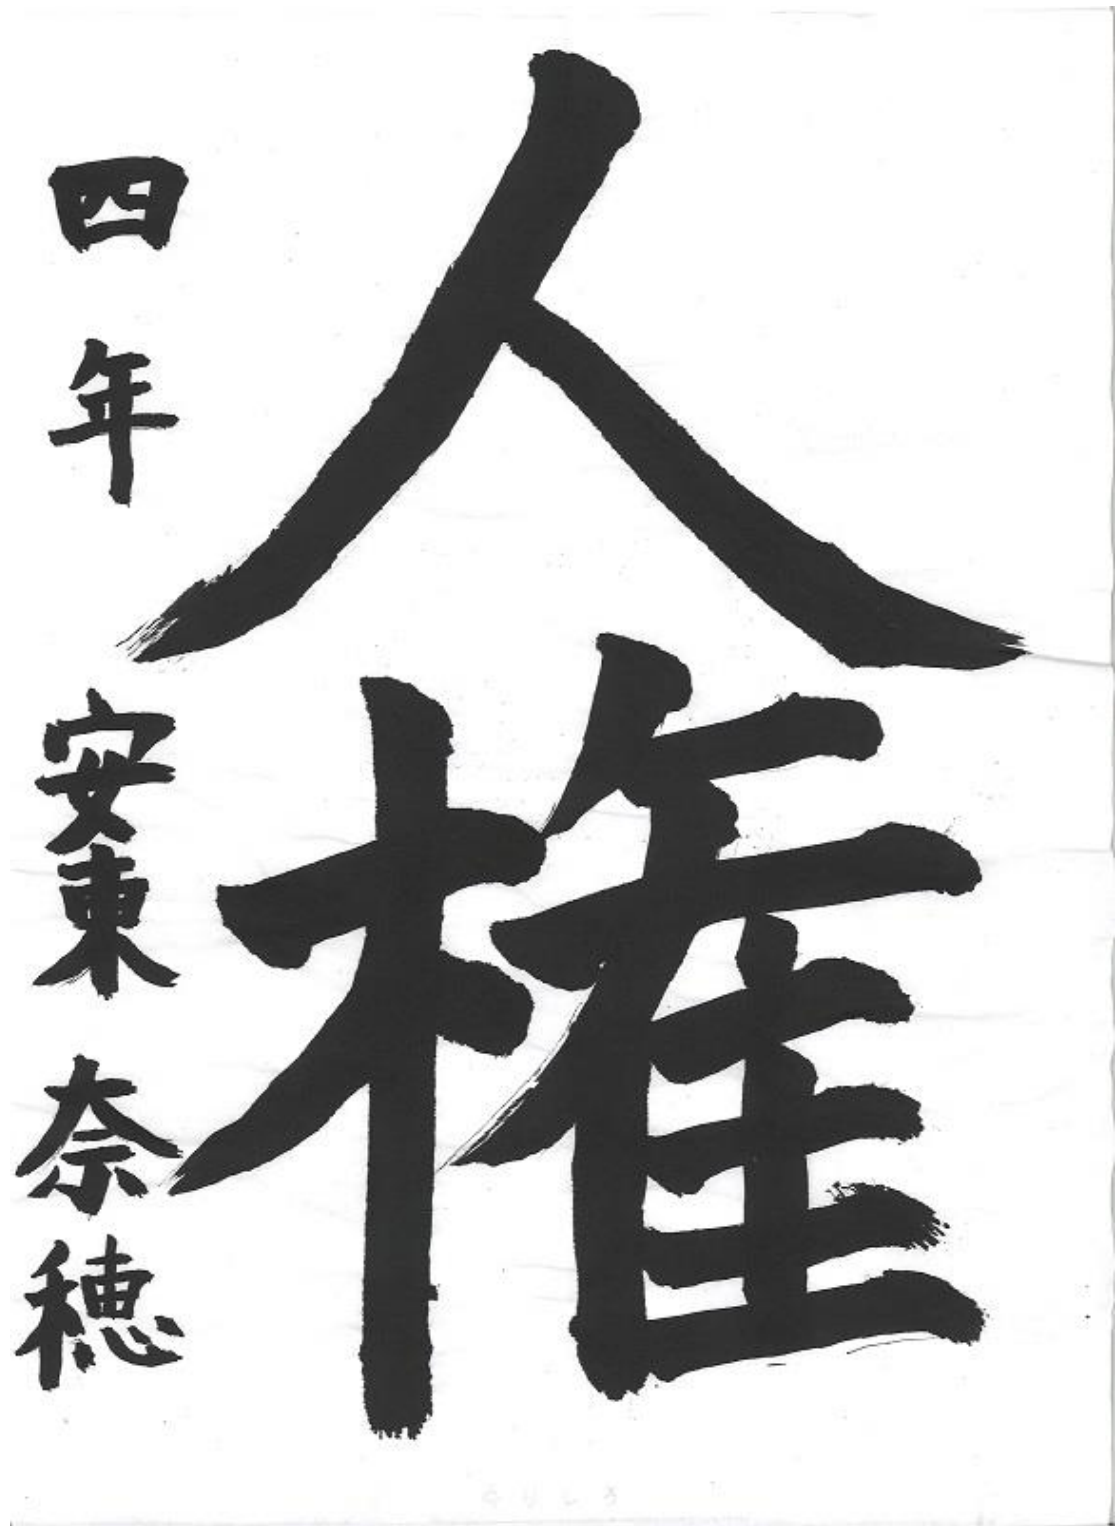 人権
四年 安東 奈穂